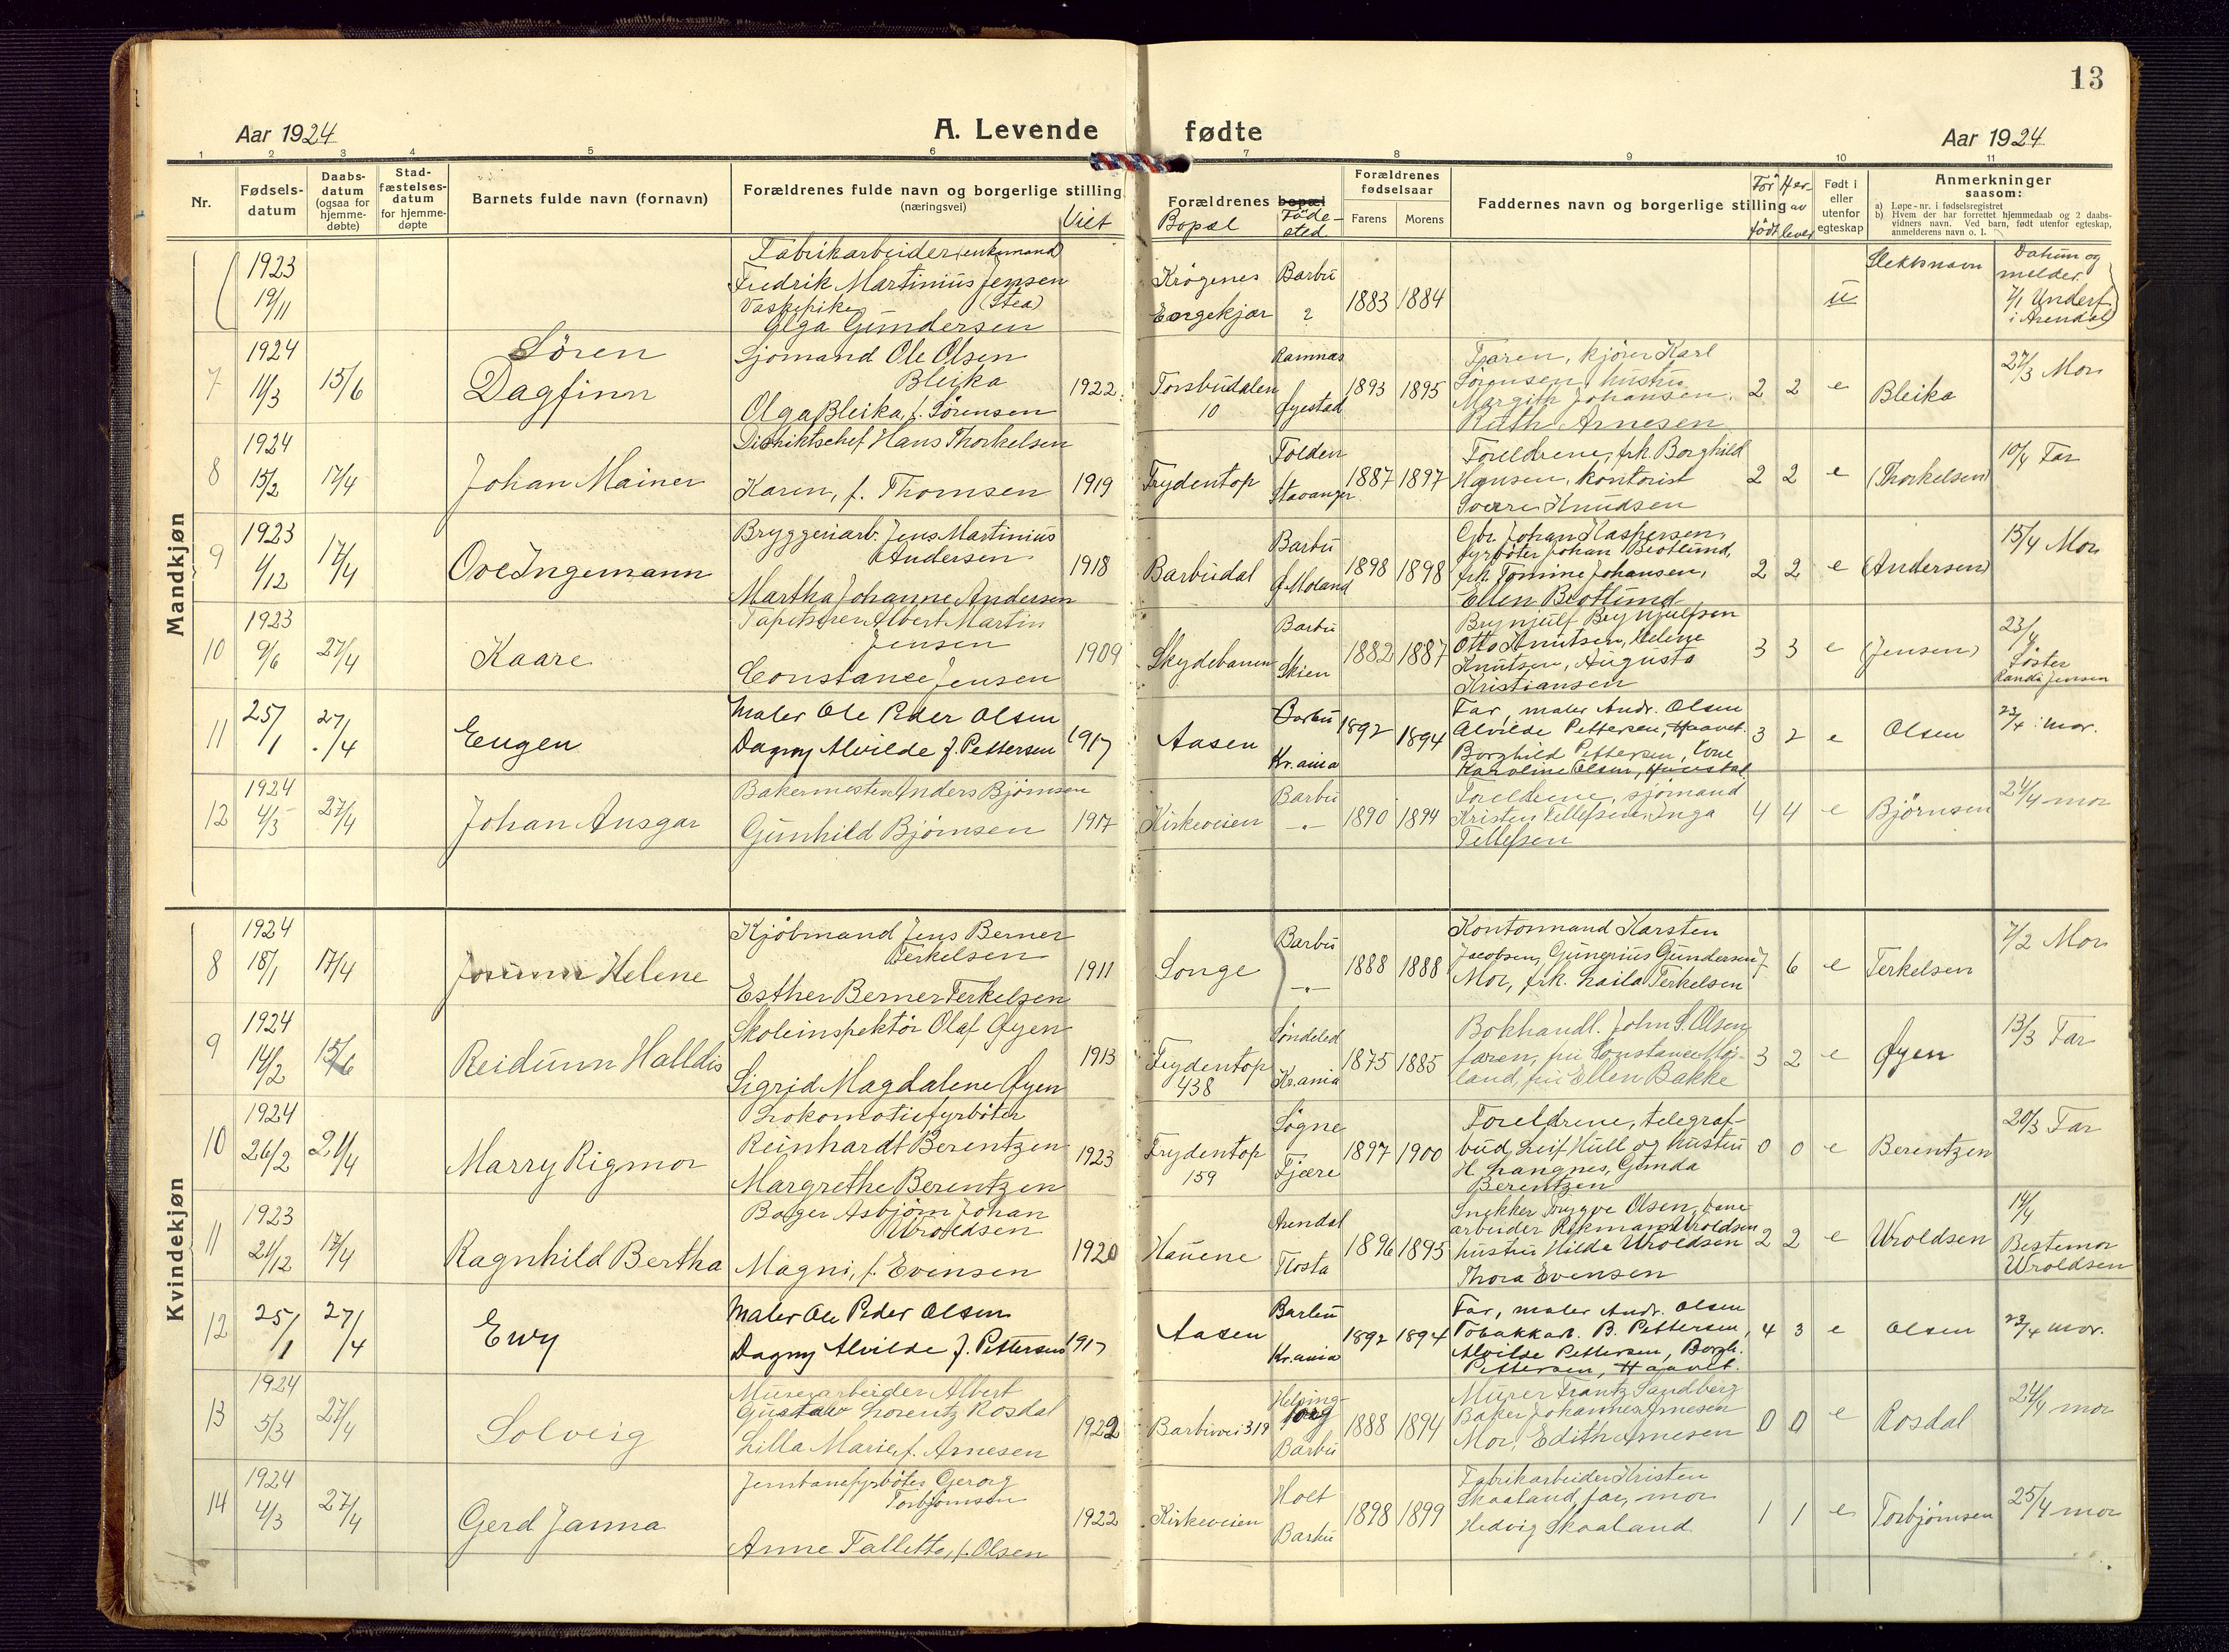 13
Aar 1924
A. Levende fødte
Aar 1924
1 2 3 4 5 6 7 8 9 10 11
Nr.
Fødsels-
datum
Daabs-
datum
(ogsaa for
hjemme-
døbte)
Stad-
fæstelses-
datum
for hjemme-
døpte
Barnets fulde navn (fornavn)
Forældrenes fulde navn og borgerlige stilling
(næringsvei)
Viet
Forældrenes bopæl
Bopæl
Föde-
sted
Forældrenes
fødselsaar
Farens
Morens
Faddernes navn og borgerlige stilling
För
født
Her-
av
lever
Født i
eller
utenfor
egteskap
Anmerkninger
saasom:
a) Løpe-nr. i fødselsregistret
b) Hvem der har forrettet hjemmedaab og 2 daabs-
vidners navn. Ved barn, født utenfor egteskap,
anmelderens navn o. l.
Mandkjøn
1923
19/11
Fabrikarbeider (enkemand)
Fredrik Martinius Jensen
(Stea)
Vaskepike
Olga Gundersen
Krøgenes
Engekjær
Barbu
?
1883 1884
u
Slektsnavn
Datum og
melder
7/1 Underf.
i Arendal
7
1924
11/3
15/6
Sören
Dagfinn
Sjømand Ole Olsen
Bleika
Olga Bleika, f. Sörensen
1922
Torsbudalen
10
Ramnæs
Øyestad
1893 1895
Faren, kjörer Karl
Sörensen, hustru
Margith Johansen,
Ruth Arnesen
2 2 e
Bleika
27/3 Mor
8
1924
15/2
17/4
Johan Mainer
Distriktschef Hans Thorkelsen
Karen, f. Thomsen
1919
Frydentop
Folden
Stavanger
1887 1897
Foreldrene, frk Borghild
Hansen, kontorist
Sverre Knudsen
2 2 e
(Thorkelsen)
10/4 Far
9
1923
4/12
17/4
Ove Ingemann
Bryggeriarb. Jens Martinius
Andersen
Martha Johanne Andersen
1918
Barbudal
Barbu
Ø. Moland
1898 1898
Gbr. Johan Kaspersen,
fyrbøter Johan Brotlund,
frk. Tomine Johansen,
Ellen Brotlund
2 2 e
(Andersen)
15/4 Mor
10
1923
9/6
27/4
Kaare
Tapetserer Albert Martin
Jensen
Constance Jensen
1909
Skydebanen
Barbu
Skien
1882 1887
Brynjulf Brynjulfsen
Otto Knutsen, Helene
Knutsen, Augusta
Kristiansen
3 3 e
(Jensen)
23/4
Söster
Randi Jensen
11
25/1
27/4
Eugen
Maler Ole Peder Olsen
Dagny Alvilde f. Pettersen
1917
Aasen
Barbu
Kr.ania
1892 1894
Far, maler Andr. Olsen
Alvilde Pettersen, Haavet.
Borghild Pettersen,
Karoline Olsen,
3 2 e
Olsen
23/4 mor.
12
1924
4/3
27/4
Johan Ansgar
Bakermester Anders Bjørnsen
Gunhild Bjørnsen
1917
Kirkeveien
Barbu
-"-
1890 1894
Foreldrene, sjömand
Kristen Tellefsen, Inga
Tellefsen
4 4 e
Björnsen
24/4 mor
Kvindekjøn
8
1924
18/1
17/4
Helene
Kjöbmand Jens Berner
Terkelsen
Esther Berner Terkelsen
1911
Songe
Barbu
-"-
1888 1888
Kontormand Karsten
Jacobsen, Gunerius Gundersen
Mor, frk. Laila Terkelsen
7 6 e
Terkelsen
7/2 Mor
9
1924
14/2
15/6
Reidunn Halldis
Skoleinspektör Olaf Øyen
Sigrid Magdalene Øyen
1913
Frydentop
438
Söndeled
Kr.ania
1875 1885
Bokhandl. John S. Olsen,
faren, fru Constance Møg-
land, fru Ellen Bakke
3 2 e
Øyen
13/3 Far
10
1924
26/2
21/4
Marry Rigmor
Lokomotivfyrböter
Reinhardt Berentzen
Margrethe Berentzen
1923
Frydentop
159
Sögne
Fjære
1897 1900
Foreldrene, telegraf-
bud Leif Hull og hustru
H. Langnes, Gunda
Berentzen
0 0 e
Berentzen
20/3 Far
11
1923
21/12
17/4
Ragnhild Bertha
Bager Asbjørn Johan
Uroldsen
Magni, f. Evensen
1920
Hauene
Arendal
Flosta
1896 1895
Snekker Trygve Olsen, bane
arbeider Rikman Uroldsen
hustru Hilda Uroldsen
Thora Evensen
2 2 e
Uroldsen
14/4
Bestemor
Uroldsen
12
25/1
27/4
Ewy
Maler Ole Peder Olsen
Dagny Alvilde f. Pettersen
1917
Aasen
Barbu
Kr.ania
1892 1894
Far, maler Andr. Olsen
Tobakkarb. B. Pettersen,
Alvilde Pettersen, Borgh.
Pettersen, Haavet.
4 3 e
Olsen
23/4 mor.
13
1924
5/3
27/4
Solveig
Murerarbeider Albert
Gustav Lorentz Rosdal
Lilla Marie f. Arnesen
1922
Barbuvei 319
Helsing-
borg
Barbu
1888 1894
Murer Frantz Sandberg
Baker Johannes Arnesen
Mor, Edith Arnesen
0 0 e
Rosdal
24/4 mor
14
1924
4/3
27/4
Gerd Janna
Jernbanefyrböter Georg
Torbjørnsen
Anne Tallette, f. Olsen
1922
Kirkeveien
Holt
Barbu
1898 1899
Fabrikarbeider Kristen
Skaaland, far, mor
Hedvig Skaaland
1 1 e
Torbjørnsen
25/4 mor